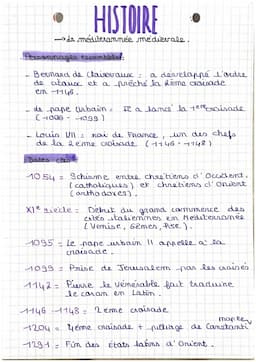 HISTOIRE
→ la méditerrannée médiévale.
Personnages essentielles :
- Bernard de Clairevaux : a développé l'ordre
de citaux et a prêché la 2ème croisade
en 1146.
- Le pape Urbain II a lancé la 1ère croisade
(1096 - 1099)
- Louis VII : roi de France, un des chefs
de la 2ème croisade (1146 - 1149)
Dates clé :
- 1054 = Schisme entre chrétiens d'Occident.
(catholiques) et chrétiens d'Orient
(orthodoxes).
- XIe siècle = Début du grand commerce des
cités italiennes en Méditerrannée
(Venise, Gênes, Pise).
- 1095 = Le pape urbain II appelle a la
croisade.
- 1099 = Prise de Jerusalem par les croisés
- 1142 = Pierre le Vénérable fait traduire
le coran en Latin.
- 1146 - 1148 = 2ème croisade
- 1204 = 4ème croisade + pillage de Constanti
nople
- 1291 = Fin des états latins d'Orient.